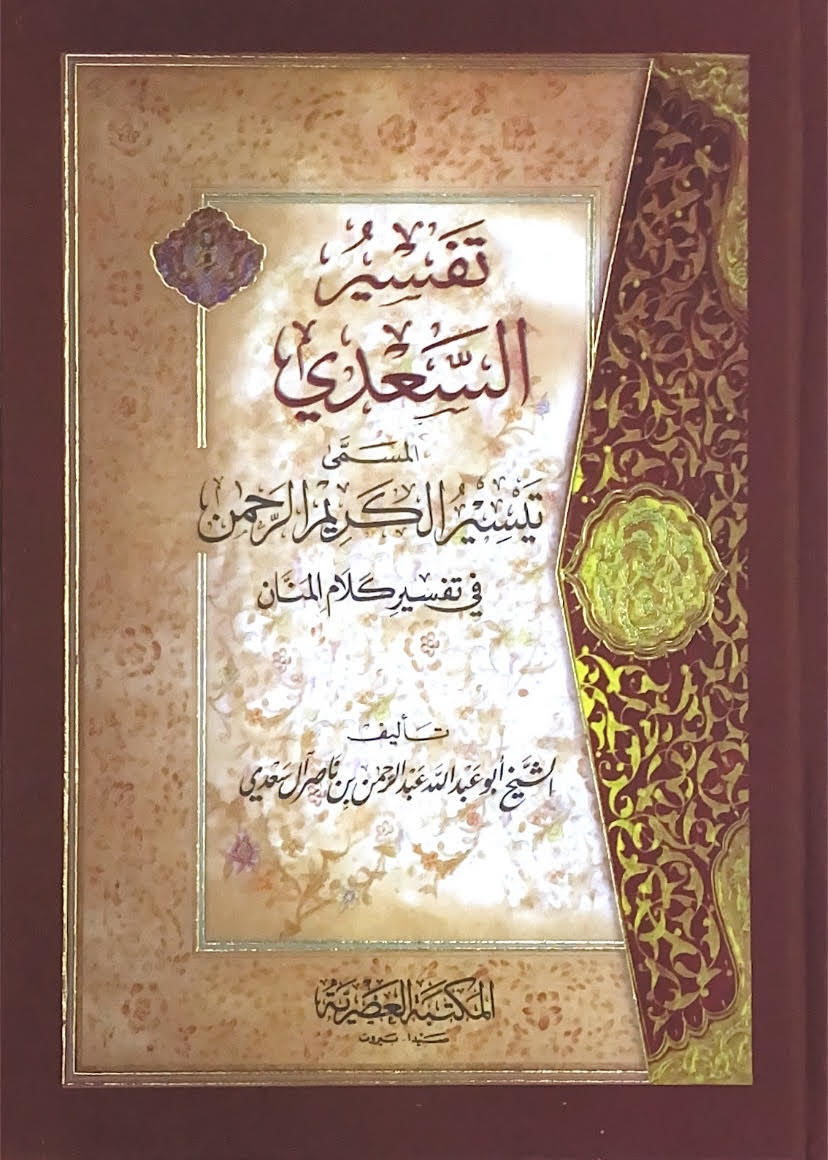 تَفْسِيرُ
السَّعْدِي
المسَمَّى
تَيْسِيْرُ الكَرِيْمِ الرَّحْمٰن
في تفسيرِ كَلَام المنَّان
تأليف
الشَّيْخ أبو عَبْد اللَّه عَبْد الرَّحمٰن بن نَاصِر آل سَعْدِي
المكتبَة العَصْريَّة
صَيْدا - بَيْروت